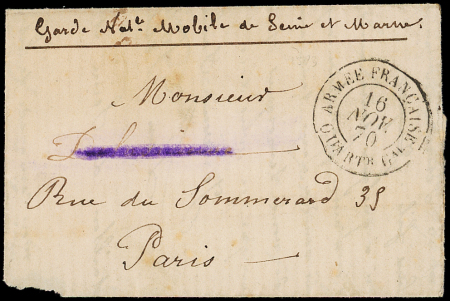 Garde Natle Mobile de Seine et Marne.
Monsieur
Rue du Sommerard 35
Paris
ARMÉE FRANÇAISE
16
NOV.
70
QUARTR GAL